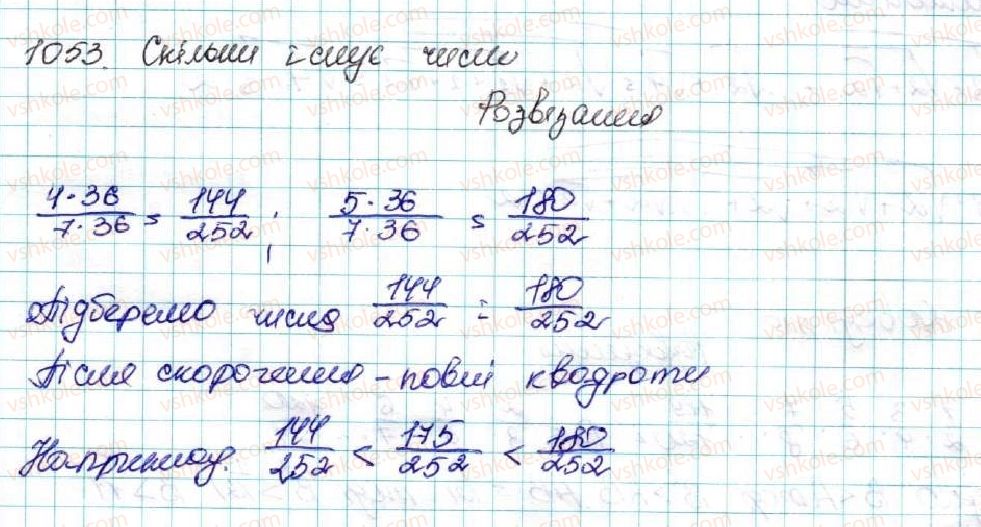 1053. Скільки існує чисел
Розв'язання
4·36/7·36 = 144/252; 5·36/7·36 = 180/252
Підберемо числа 144/252 ÷ 180/252
Після скорочення - повні квадрати
Наприклад. 144/252 < 175/252 < 180/252